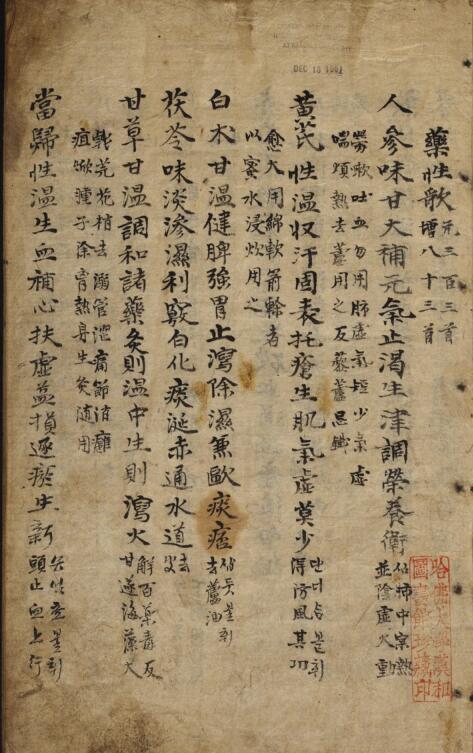 DEC 18 1961
藥性歌 元三百三首
增八十三首
人參味甘大補元氣止渴生津調榮養衛 肺中實熱
並陰虛火動
勞歌吐血勿用肺虛氣短少氣虛
喘煩熱去蘆用之反藜蘆忌鐵
黄芪性溫収汗固表托瘡生肌氣虛莫少
得防風其功
愈大用綿軟箭幹者
以蜜水浸炒用之
白朮甘溫健脾強胃止瀉除濕兼歐痰痞
去蘆油
茯苓味淡滲濕利竅白化痰涎赤通水道 去皮
甘草甘溫調和諸藥灸則溫中生則瀉火 解百藥毒反
甘遂海藻大
戟芫花梢去溺管澁痛節消癰
疽焮腫子除胃熱身生灸随用
當歸性溫生血補心扶虛益損逐瘀生新
頭止血上行
哈佛大學漢和
圖書館珍藏印